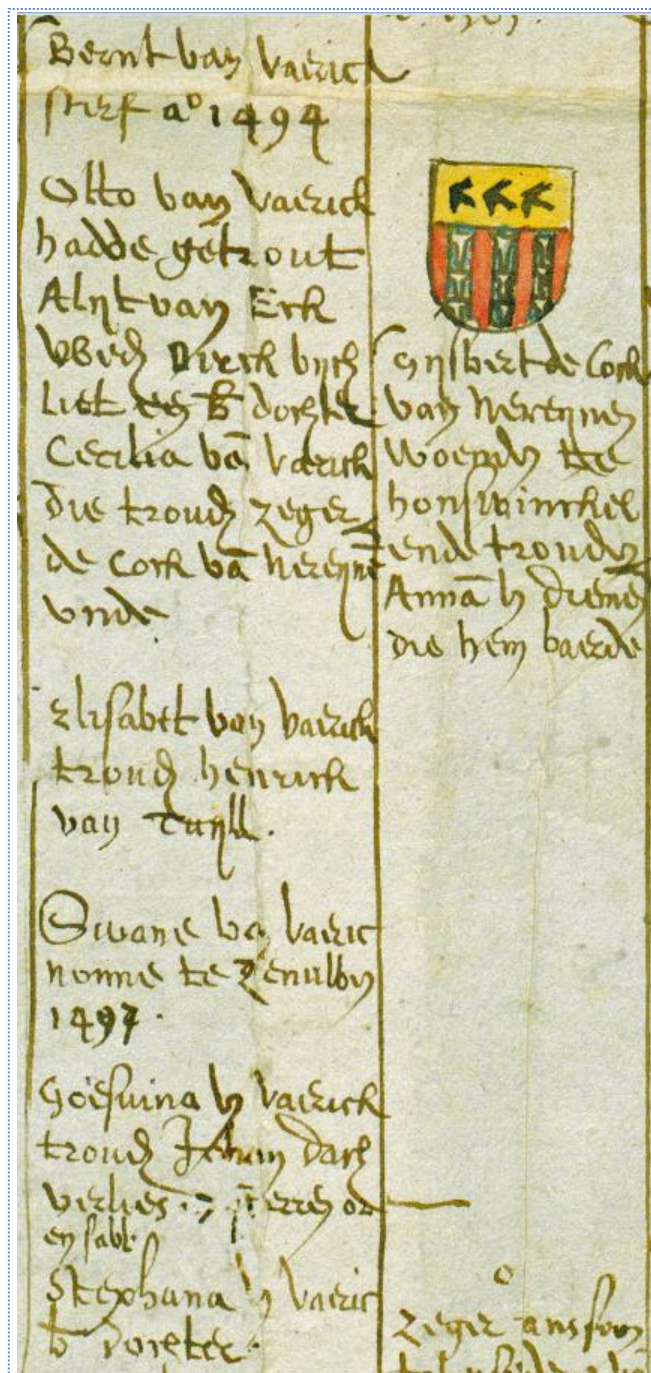 Bernt van Vaerick
sterf aº 1494
Otto van Vaerick
hadde getrout
Alijt van Eck
Wed Dirck bijch
Liet een B dochter
Cecilia vā Varick
die troud zeger
de Cock vā Nereynē
unde
Elisabet van Vaerick
troud henrick
van Tuyll.
Swane van Vaeric
nonne te Zenwijn
1497.
Goesuina v Vaerick
troud Johan
en sabl.
Stephana v Vaeric
b dochter.
Gijsbert de Cock
van Nereynen
woend te
honswinckel
ende troude
Annā v Diemen
die hem baerde
zeger